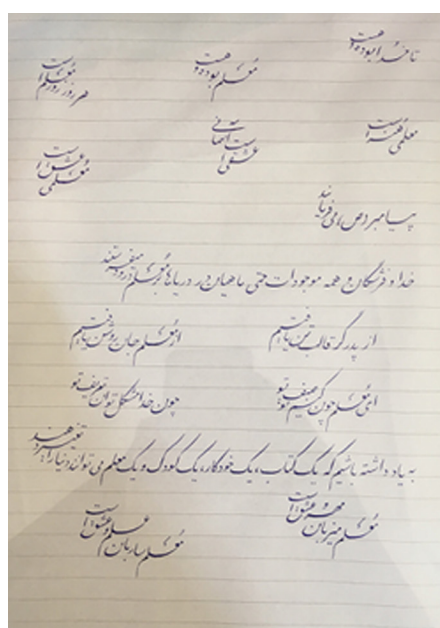 تا خدا بوده و هست
معلم بوده و هست
هر روز روز معلم است
معلمی هنر است
عشقی آسمانی است
معلمی عشق است
پیامبر (ص) می فرمایند
خدا و فرشتگان و همه موجودات حتی ماهیان در دریاها بر معلم درود میفرستند
از پدر گر قالب تن یافتیم
از معلم جان روشن یافتیم
ای معلم چون کنم توصیف تو
چون خدا مشکل توان تعریف تو
به یاد داشته باشیم که یک کتاب، یک خودکار، یک کودک و یک معلم می توانند دنیا را تغییر دهند
معلم میزبان مهر و عشق است
معلم ساربان علم و عشق است